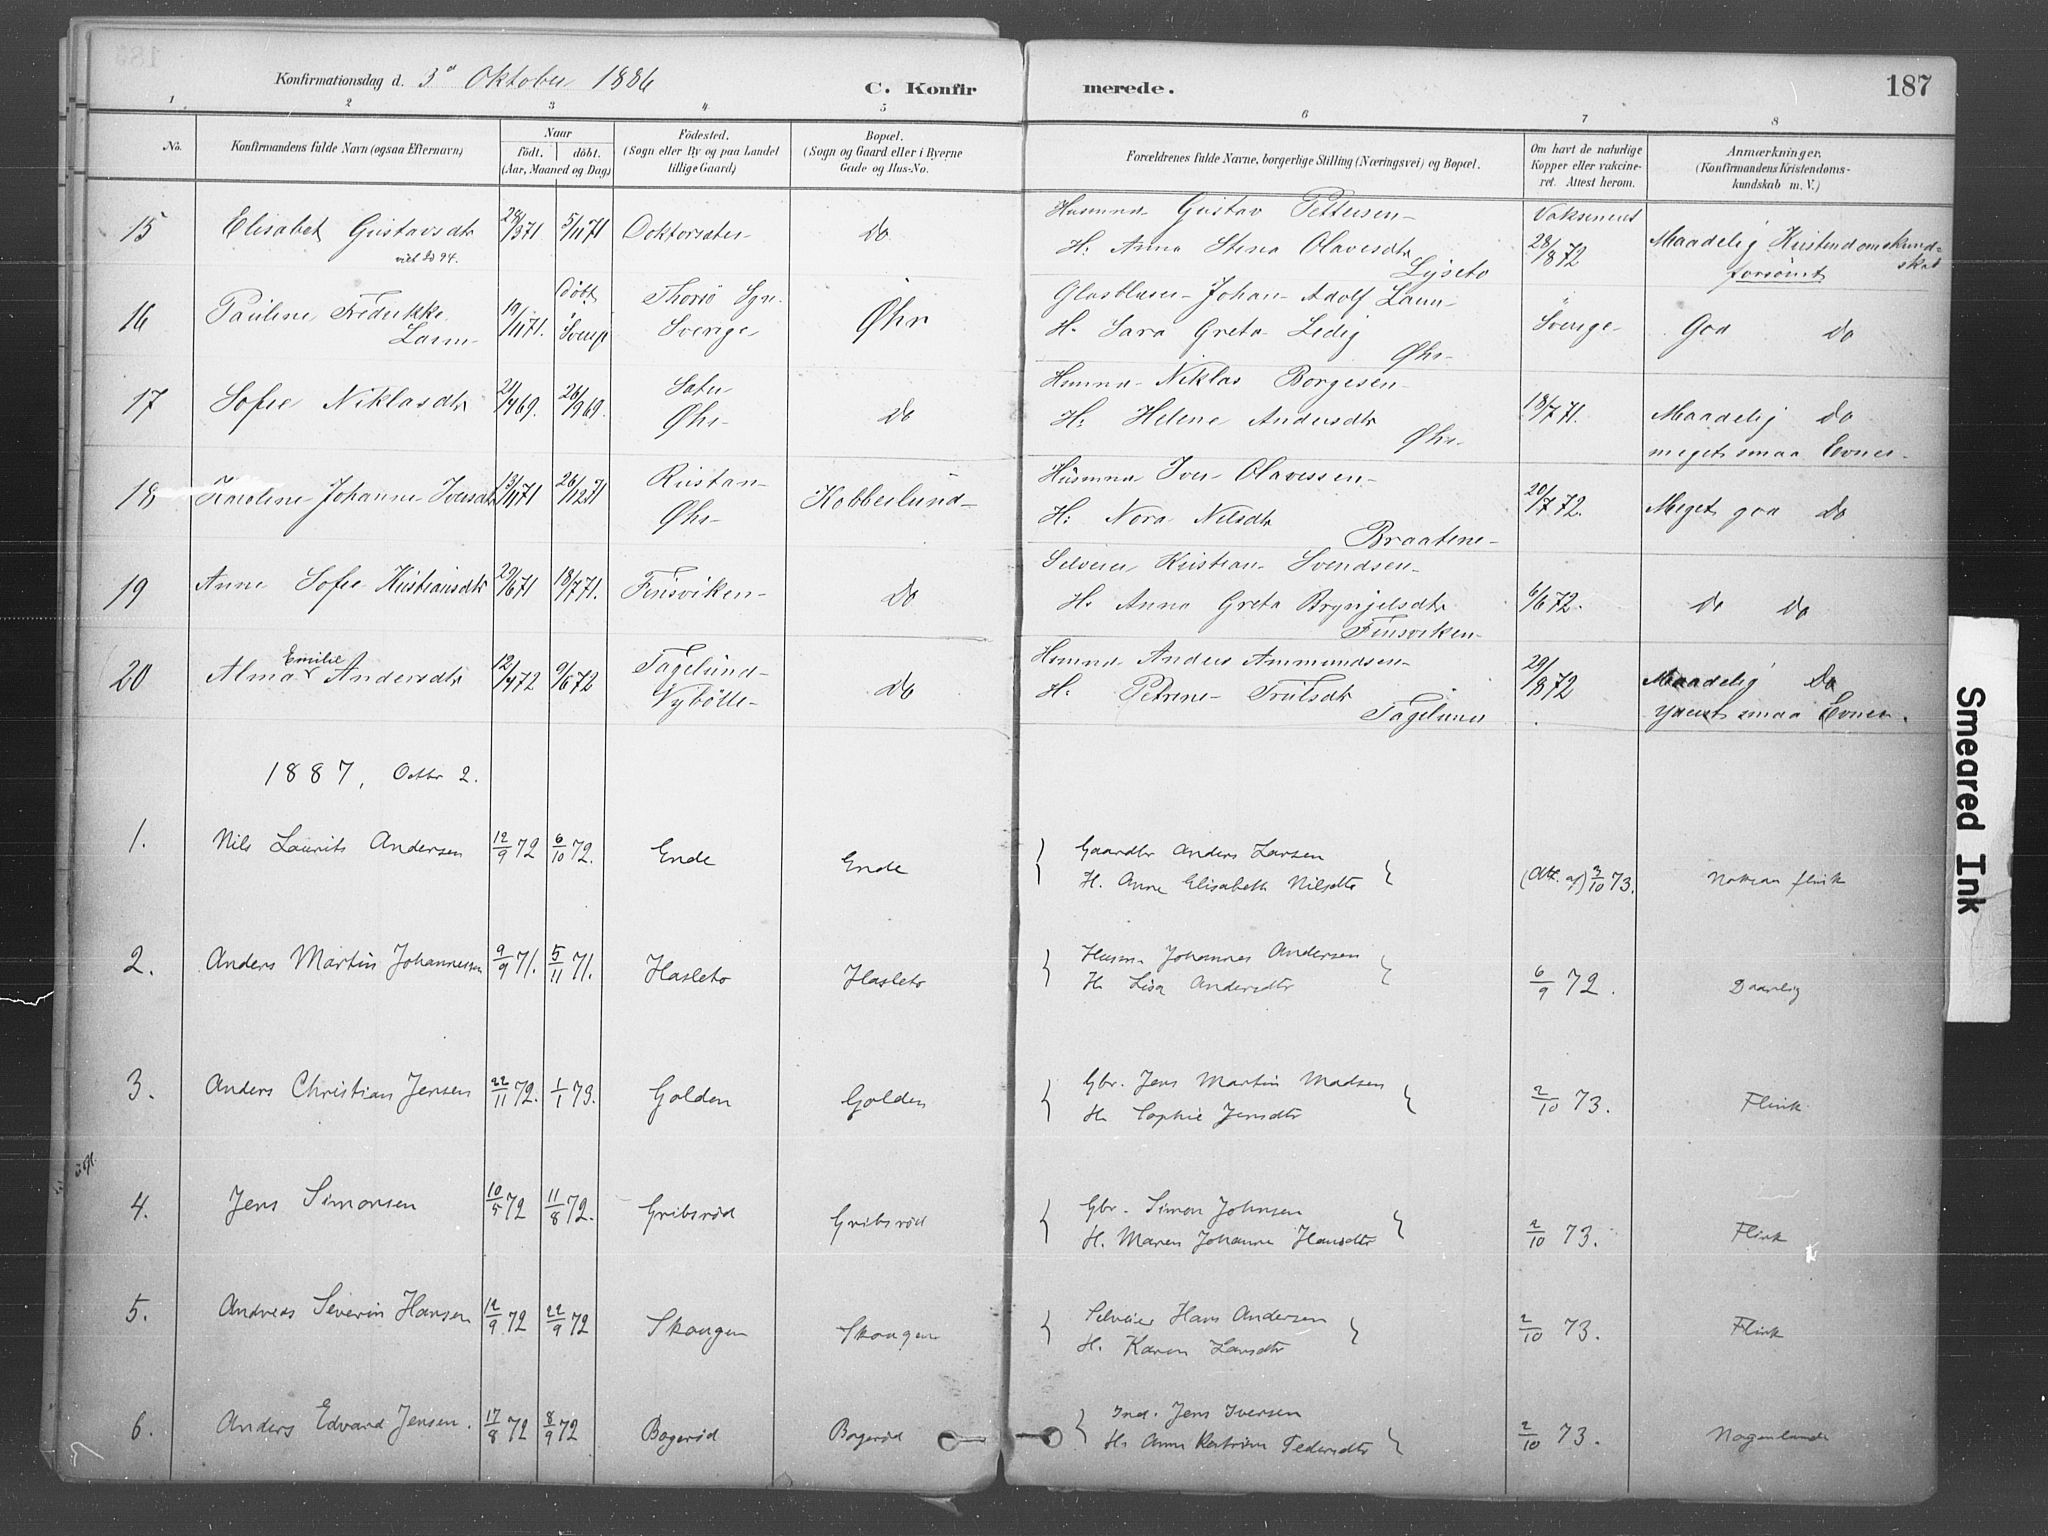 187
Konfirmationsdag d. 3d Oktober 1886
C. Konfirmerede.
1 2 3 4 5 6 7 8
No.
Konfirmandens fulde Navn (ogsaa Efternavn)
Naar
födt. döbt.
(Aar, Maaned og Dag)
Födested.
(Sogn eller By og paa Landet
tillige Gaard)
Bopæl.
(Sogn og Gaard eller i Byerne
Gade og Hus-No.
Forældrenes fulde Navne, borgerlige Stilling (Næringsvei) og Bopæl.
Om havt de naturlige
Kopper eller vakcine-
ret. Attest herom.
Anmærkninger.
(Konfirmandens Kristendoms-
kundskab m. V.)
15 Elisabet Gustavsdtr 5/11 71 Doktorsæter Do
Husmnd Gustav Pettersen
H. Anna Stina Olavesdtr
Lyseto
Vaksineret
28/8 72
Maadelig Kristendomskund-
skab
forsömt
16 Pauline Fredrikke
19/11 71. Döbt
Sverige
Øhr
Glasblaser Johan Adolf
H. Sara Greta Ledig
Øhr
Sverige God Do
17 Sofie Niklasdtr 21/4 69. 26/9 69.
Sater
Øhr
Do
Husmnd Niklas Borgesen
H. Helene Andersdtr
Øhr
18/7 71. Maadelig Do
meget smaa Evner
18 Karoline Johanne Iversdtr 13/11 71 26/12 71
Rustan
Øhr
Kobberlund
Husmnd Iver Olavessen
H: Nora Nilsdtr
Braatene
20/7 72. Meget god Do
19 Anne Sofie Kristiansdtr 29/6 71 18/7 71. Finsviken Do
Selveier Kristian Svendsen
H. Anna Greta Brynjelsdtr
Finsviken
6/6 72. do Do
20 Alma Emilie Andersdtr 12/4 72 9/6 72
Fagelund
Do
Husmnd Anders Ammundsen
H. Petrine Trulsdtr
Fagelund
29/8 72 Maadelig Do
smaa Evner.
1887, Octbr 2.
1. Nils Laurits Andersen 12/9 72 6/10 72. Ende Ende
Gaardbr Anders Larsen
H. Anne Elisabeth Nilsdtr
(Att. af) 2/10 73. Noksaa flink
2. Anders Martin Johannessen 9/9 71. 5/11 71. Hasleto Hasleto
Husm. Johannes Andersen
H. Lisa Andersdtr
6/9 72. Daarlig
3. Anders Christian Jensen 22/11 72. 1/1 73. Golden Golden
Gbr. Jens Martin Madsen
H. Sophie Jensdtr
2/10 73. Flink
4. Jens Simonsen 10/5 72 11/8 72. Gribsrød Gribsrød
Gbr. Simon Johnsen
H. Maren Johanne Hansdtr
2/10 73. Flink
5. Andreas Severin Hansen 12/9 72 22/9 72 Skougen Skougen
Selveier Hans Andersen
H. Karen Larsdtr
2/10 73. Flink
6. Anders Edvard Jensen. 17/8 72 8/9 72 Bogerød Bogerød
Ind. Jens Iversen
H. Anne Pedersdtr
2/10 73. Nogenlunde
Smeared Ink